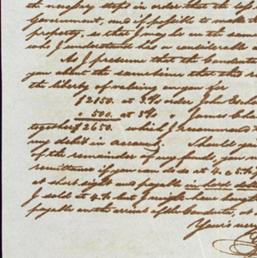 the necessary steps in order that the
Government, and if possible to make th
property, so that I may be in the same
who I understand has a considerable
As I presume that the
you about the same time that this
the liberty of valuing on you for
$2150. at 3 % order John
" 500. at 3 % " James
together $2650. which I recommend
my debit in account. Should you
of the remainder of my funds, you
remittance if you can do so at 4 a 5 %
at short sight and payable in hard doll
I sold at 4 % but I might have
payable on the arrival of the
Yours very